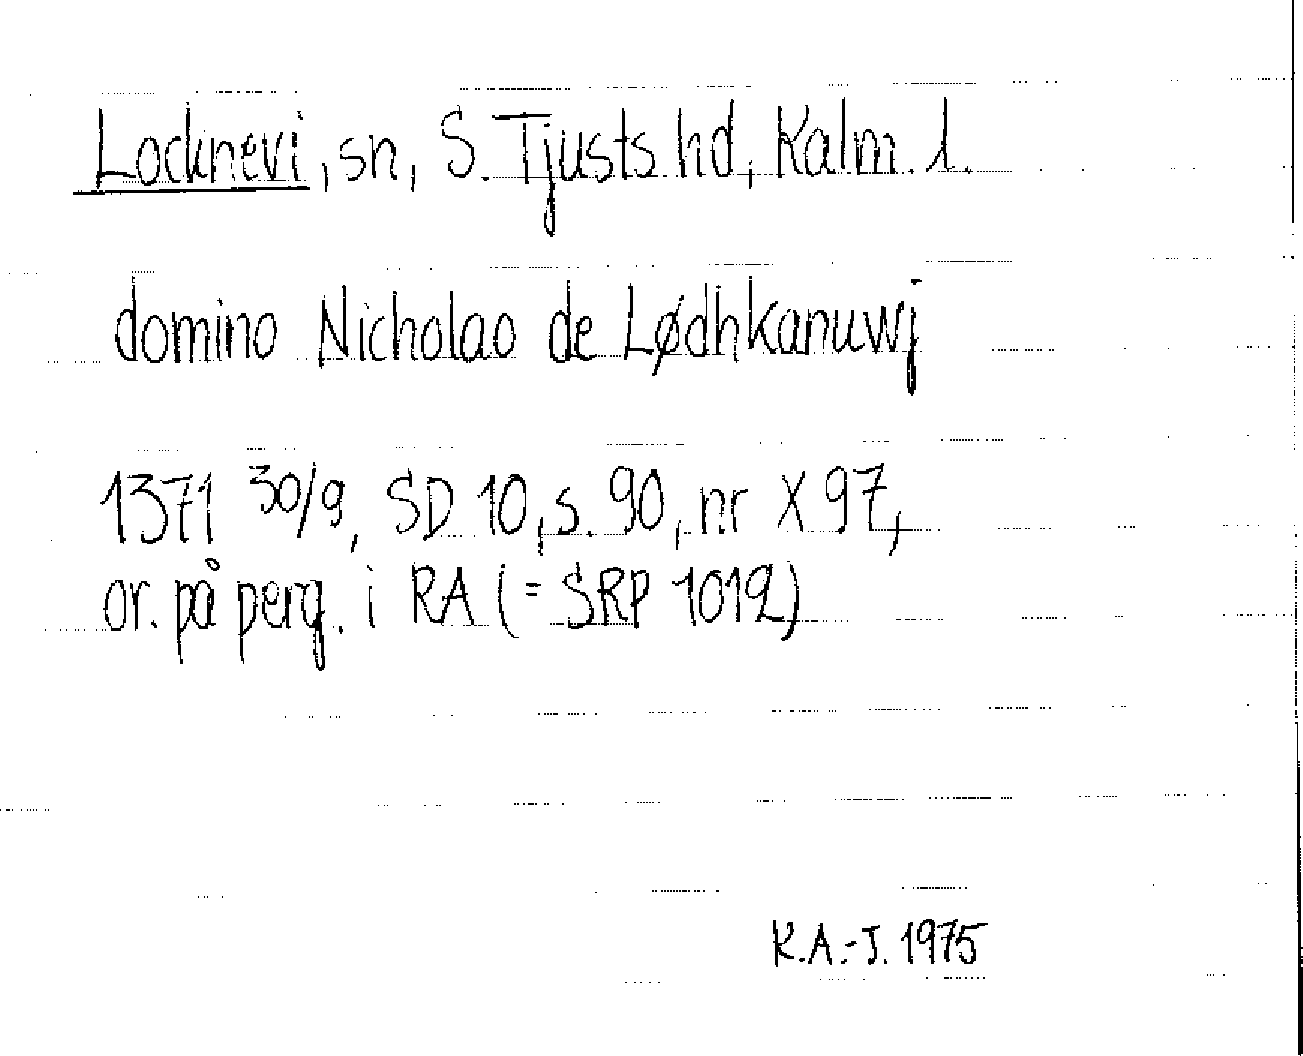 Locknevi, sn, S. Tjusts hd, Kalm. l.
domino Nicholao de Lødhkanuwj
1371 30/9, SD 10, s. 90, nr X 97,
or. på perg. i RA (= SRP 1012)
K.A.-J. 1975